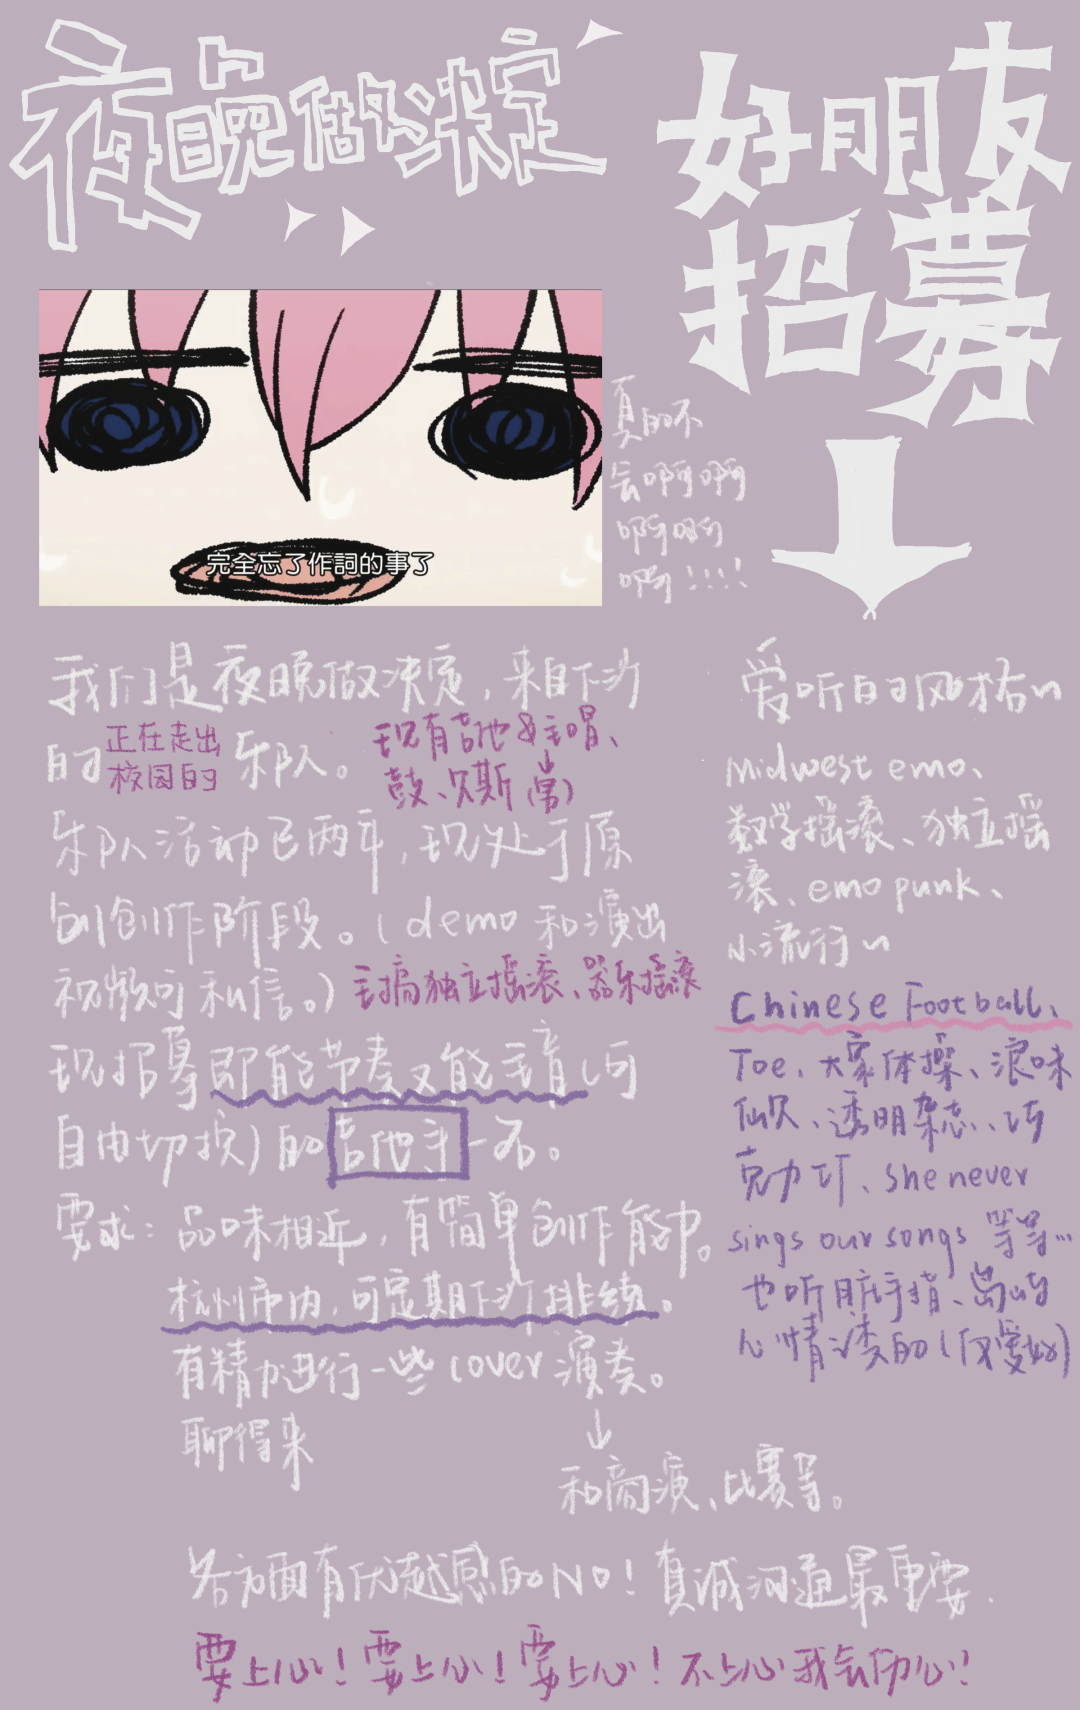 夜晚做决定
好朋友
招募
完全忘了作詞的事了
真的不
会啊啊
啊啊
啊!!!!
我们是夜晚做决定，来自下沙
的正在走出校园的乐队。
现有吉他&主唱、
鼓、贝斯(常)
乐队活动已两年，现处于原
创创作阶段。(demo和演出
视频可私信。)
主搞独立摇滚、器乐摇滚
现招募即能节奏又能主音(可
自由切换)的吉他手一名。
要求：品味相近，有简单创作能力。
杭州市内，可定期下沙排练。
有精力进行一些cover演奏。
↓
和商演、比赛等。
聊得来
爱听的风格~
Midwest emo、
数学摇滚、独立摇
滚、emo punk、
小流行~
Chinese Football、
Toe、大象体操、浪味
仙贝、透明杂志、巧
克力巧、she never
sings our songs 等等...
也听脏手指、岛崎
心情渣的(仅爱好)
各方面有优越感的NO！真诚沟通最重要.
要上心！要上心！要上心！不上心我会伤心！